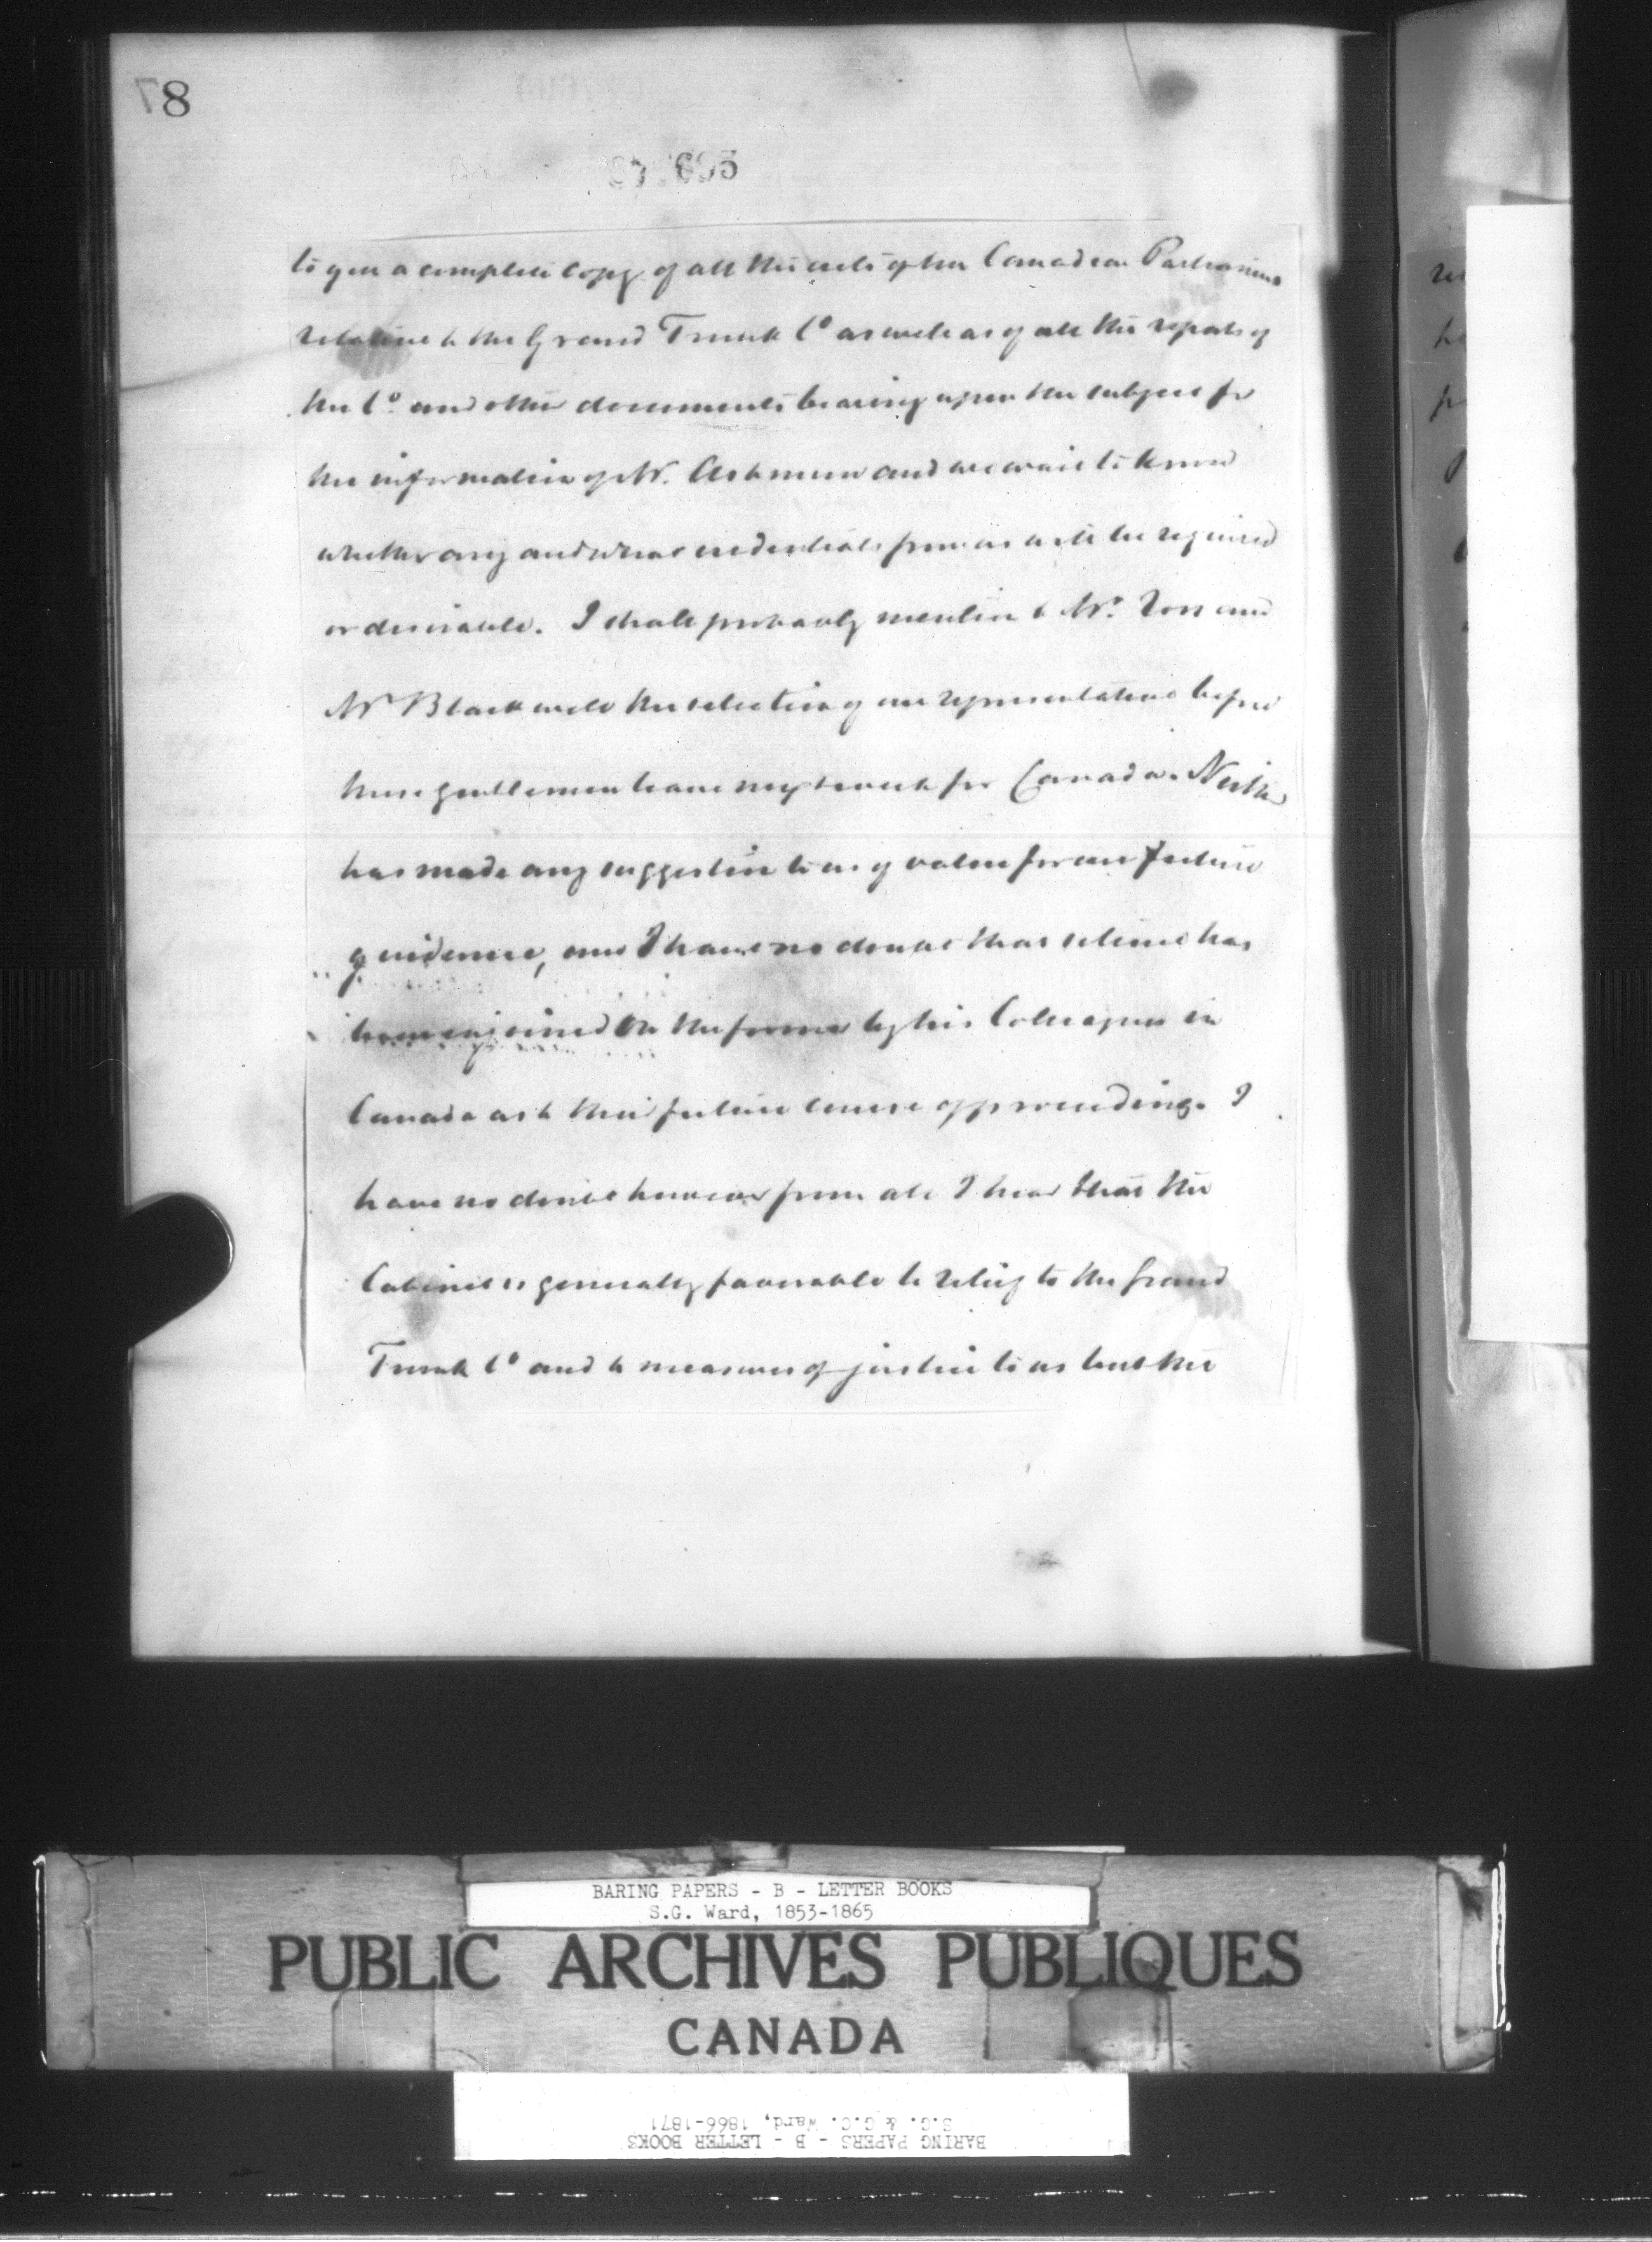 78
to you a complete copy of all the acts of the Canadian Parliament
relative to the Grand Trunk Co as well as of all the reports of
the Co. and other documents bearing upon the subject for
the information of Mr. Ashmun and we wait to know
whether any and what credentials from us will be required
or desirable. I shall probably mention to Mr. Ross and
Mr Blackwell the selection of our representative before
these gentlemen leave next week for Canada. Neither
has made any suggestion to us of value for our future
guidance, and I have no doubt that silence has
been enjoined on the former by his Colleagues in
Canada as to their future course of proceeding. I
have no doubt however from all I hear that the
Cabinet is generally favorable to relief to the Grand
Trunk Co and to measures of justice to us but the
BARING PAPERS - B - LETTER BOOKS
S.G. Ward, 1853-1865
PUBLIC ARCHIVES PUBLIQUES
CANADA
BARING PAPERS - B - LETTER BOOKS
S.G. & G.C. Ward, 1866-1871